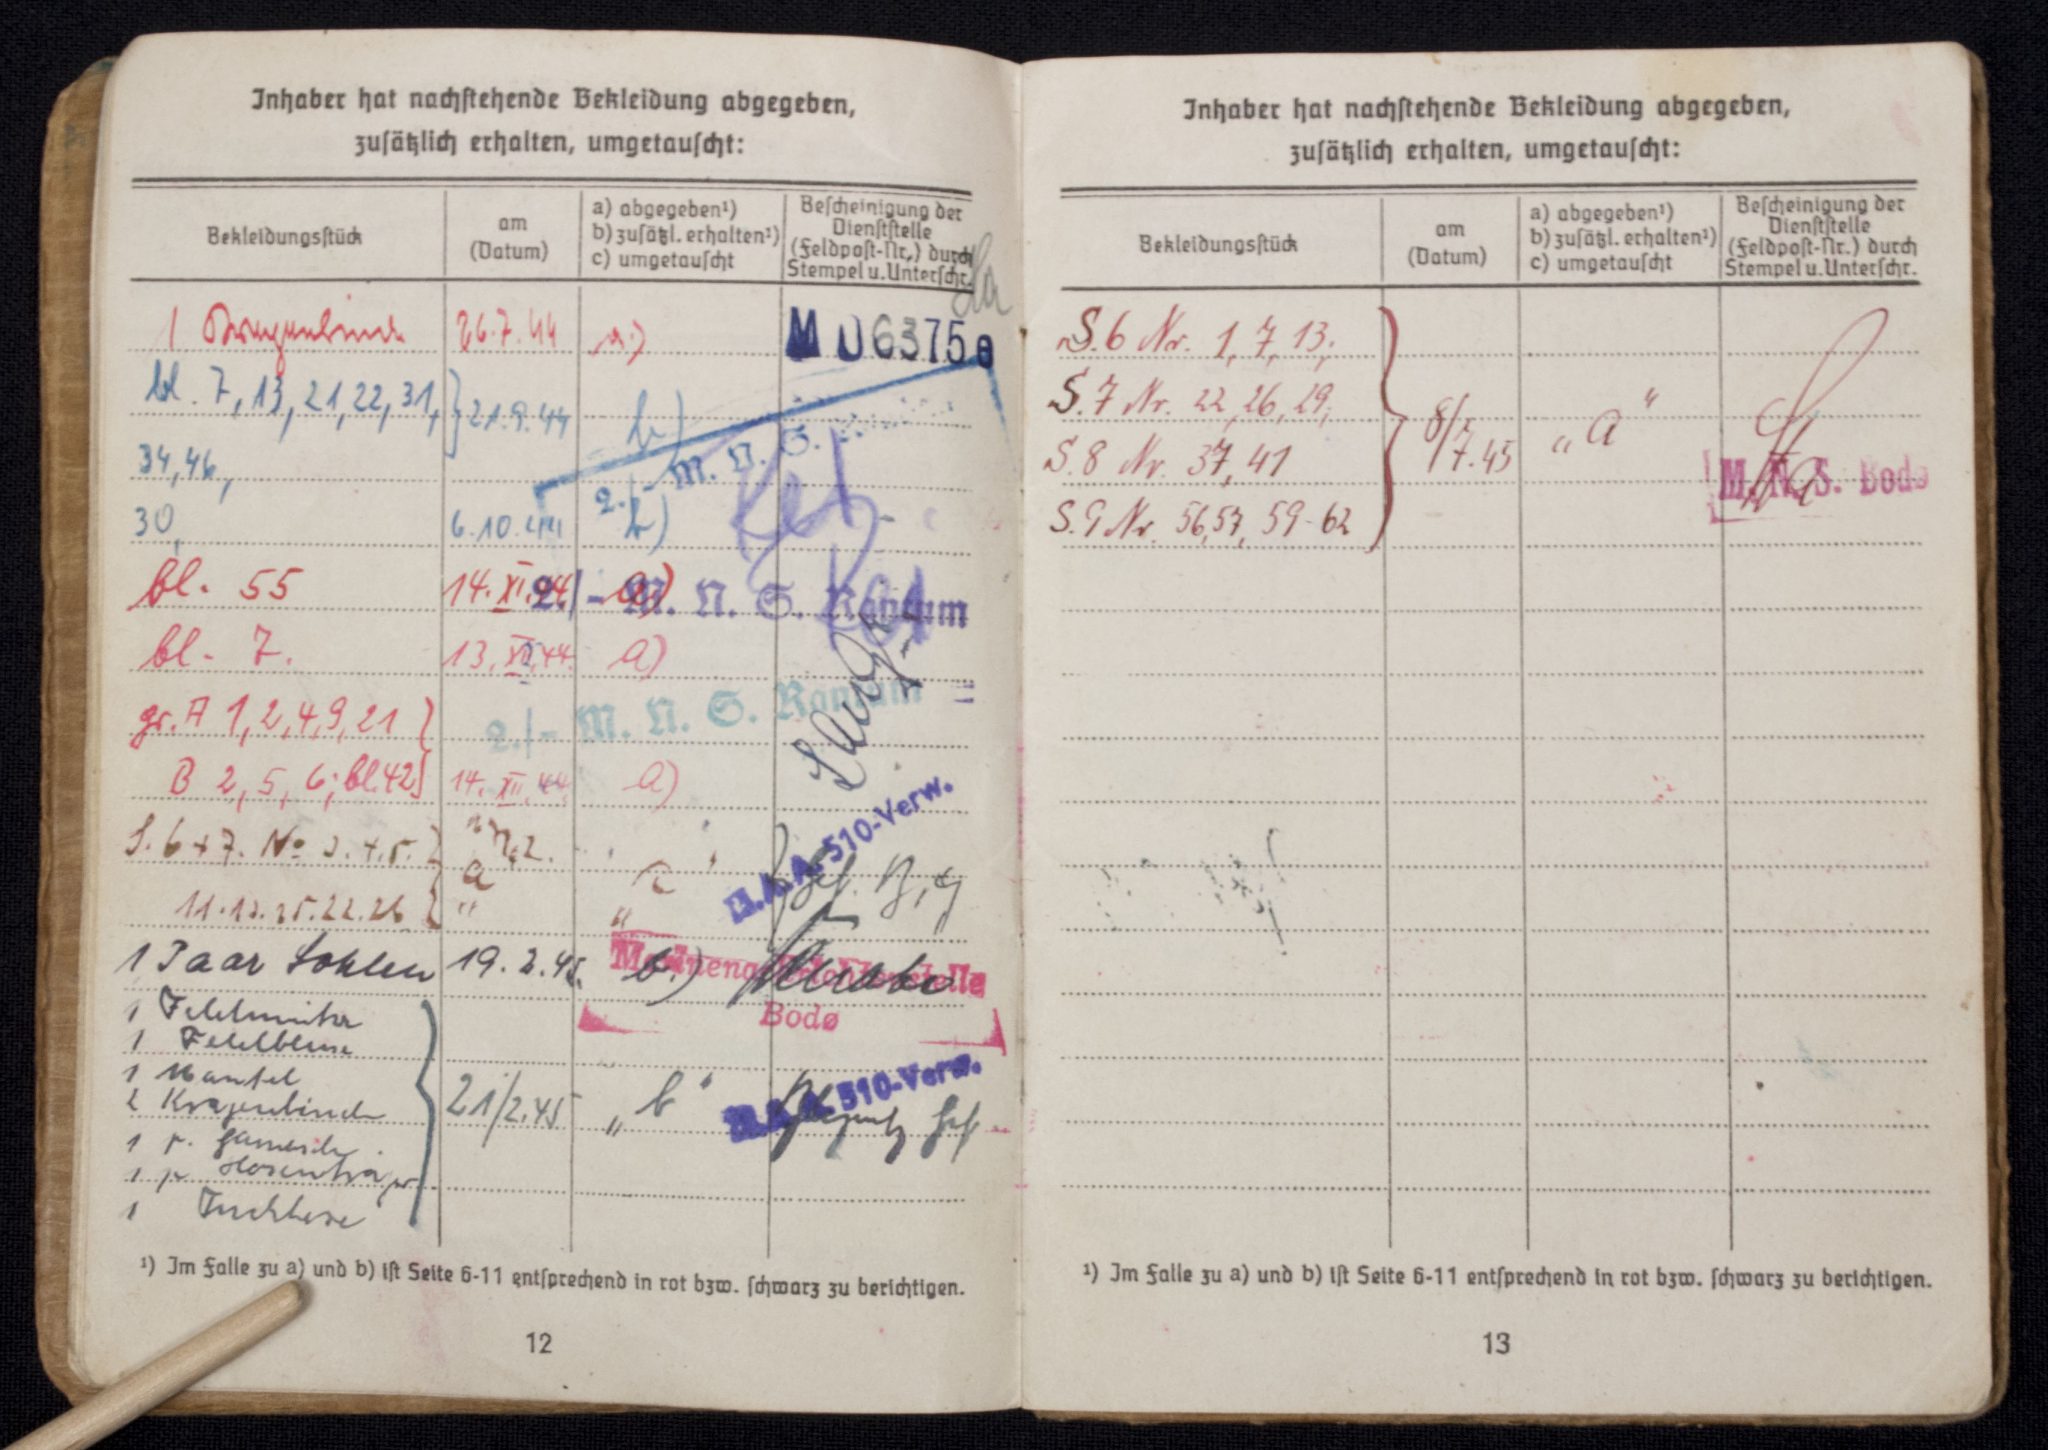 Inhaber hat nachstehende Bekleidung abgegeben,
zusätzlich erhalten, umgetauscht:
Bekleidungsstück
am
(Datum)
a) abgegeben¹)
b) zusätzl. erhalten¹)
c) umgetauscht
Bescheinigung der
Dienststelle
(Feldpost-Nr.) durch
Stempel u. Unterschr.
1 Kragenbinde 26.7.44 a.) M 06375
bl. 7, 13, 21, 22, 31, 21.9.44 b)
34, 46,
2./- M. N. S.
30, 6.10.44 b)
bl. 55 14. XI. 44 a)
2./- M. N. S. Rantum
bl. 7. 13. XII. 44. a)
gr. A 1, 2, 4, 9, 21
2./- M. N. S. Rantum
B 2, 5, 6; bl. 42 14. XII. 44. a)
M.A.A. 510-Verw.
S. 6 + 7. No
1 Paar Sohlen 19.2.45. b.)
Bodø
1 Feldmütze
1 Feldbluse
1 Mantel
2 Kragenbinde 21/2.45 „b" M.A.A. 510-Verw.
1 p. Gamasche
1 p Hosenträger
1 Tuchhose
¹) Im Falle zu a) und b) ist Seite 6-11 entsprechend in rot bzw. schwarz zu berichtigen.
12
Inhaber hat nachstehende Bekleidung abgegeben,
zusätzlich erhalten, umgetauscht:
Bekleidungsstück
am
(Datum)
a) abgegeben¹)
b) zusätzl. erhalten¹)
c) umgetauscht
Bescheinigung der
Dienststelle
(Feldpost-Nr.) durch
Stempel u. Unterschr.
S. 6 Nr. 1, 7, 13,
S. 7 Nr. 22, 26, 29, 8/7.45 „a"
S. 8 Nr. 37, 41 M. N. S. Bodø
S. 9 Nr. 56, 57, 59-62
¹) Im Falle zu a) und b) ist Seite 6-11 entsprechend in rot bzw. schwarz zu berichtigen.
13